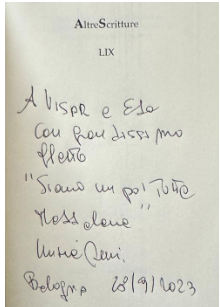 AltreScritture
LIX
A VISPR e ESA
con grandissimo
affetto
"Siamo un po' Tutte
Messalina"
Bologna 28/9/2023